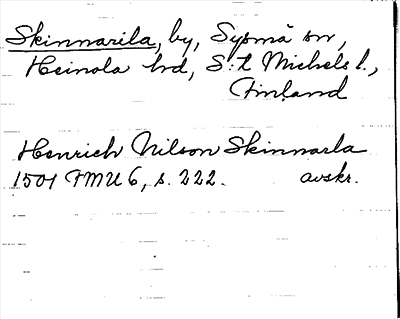 Skinnarila, by, Sysmä sn,
Heinola hd, S:t Michels l.,
Finland
Henrich Nilson Skinnarla
1501 FMU 6, s. 222. avskr.